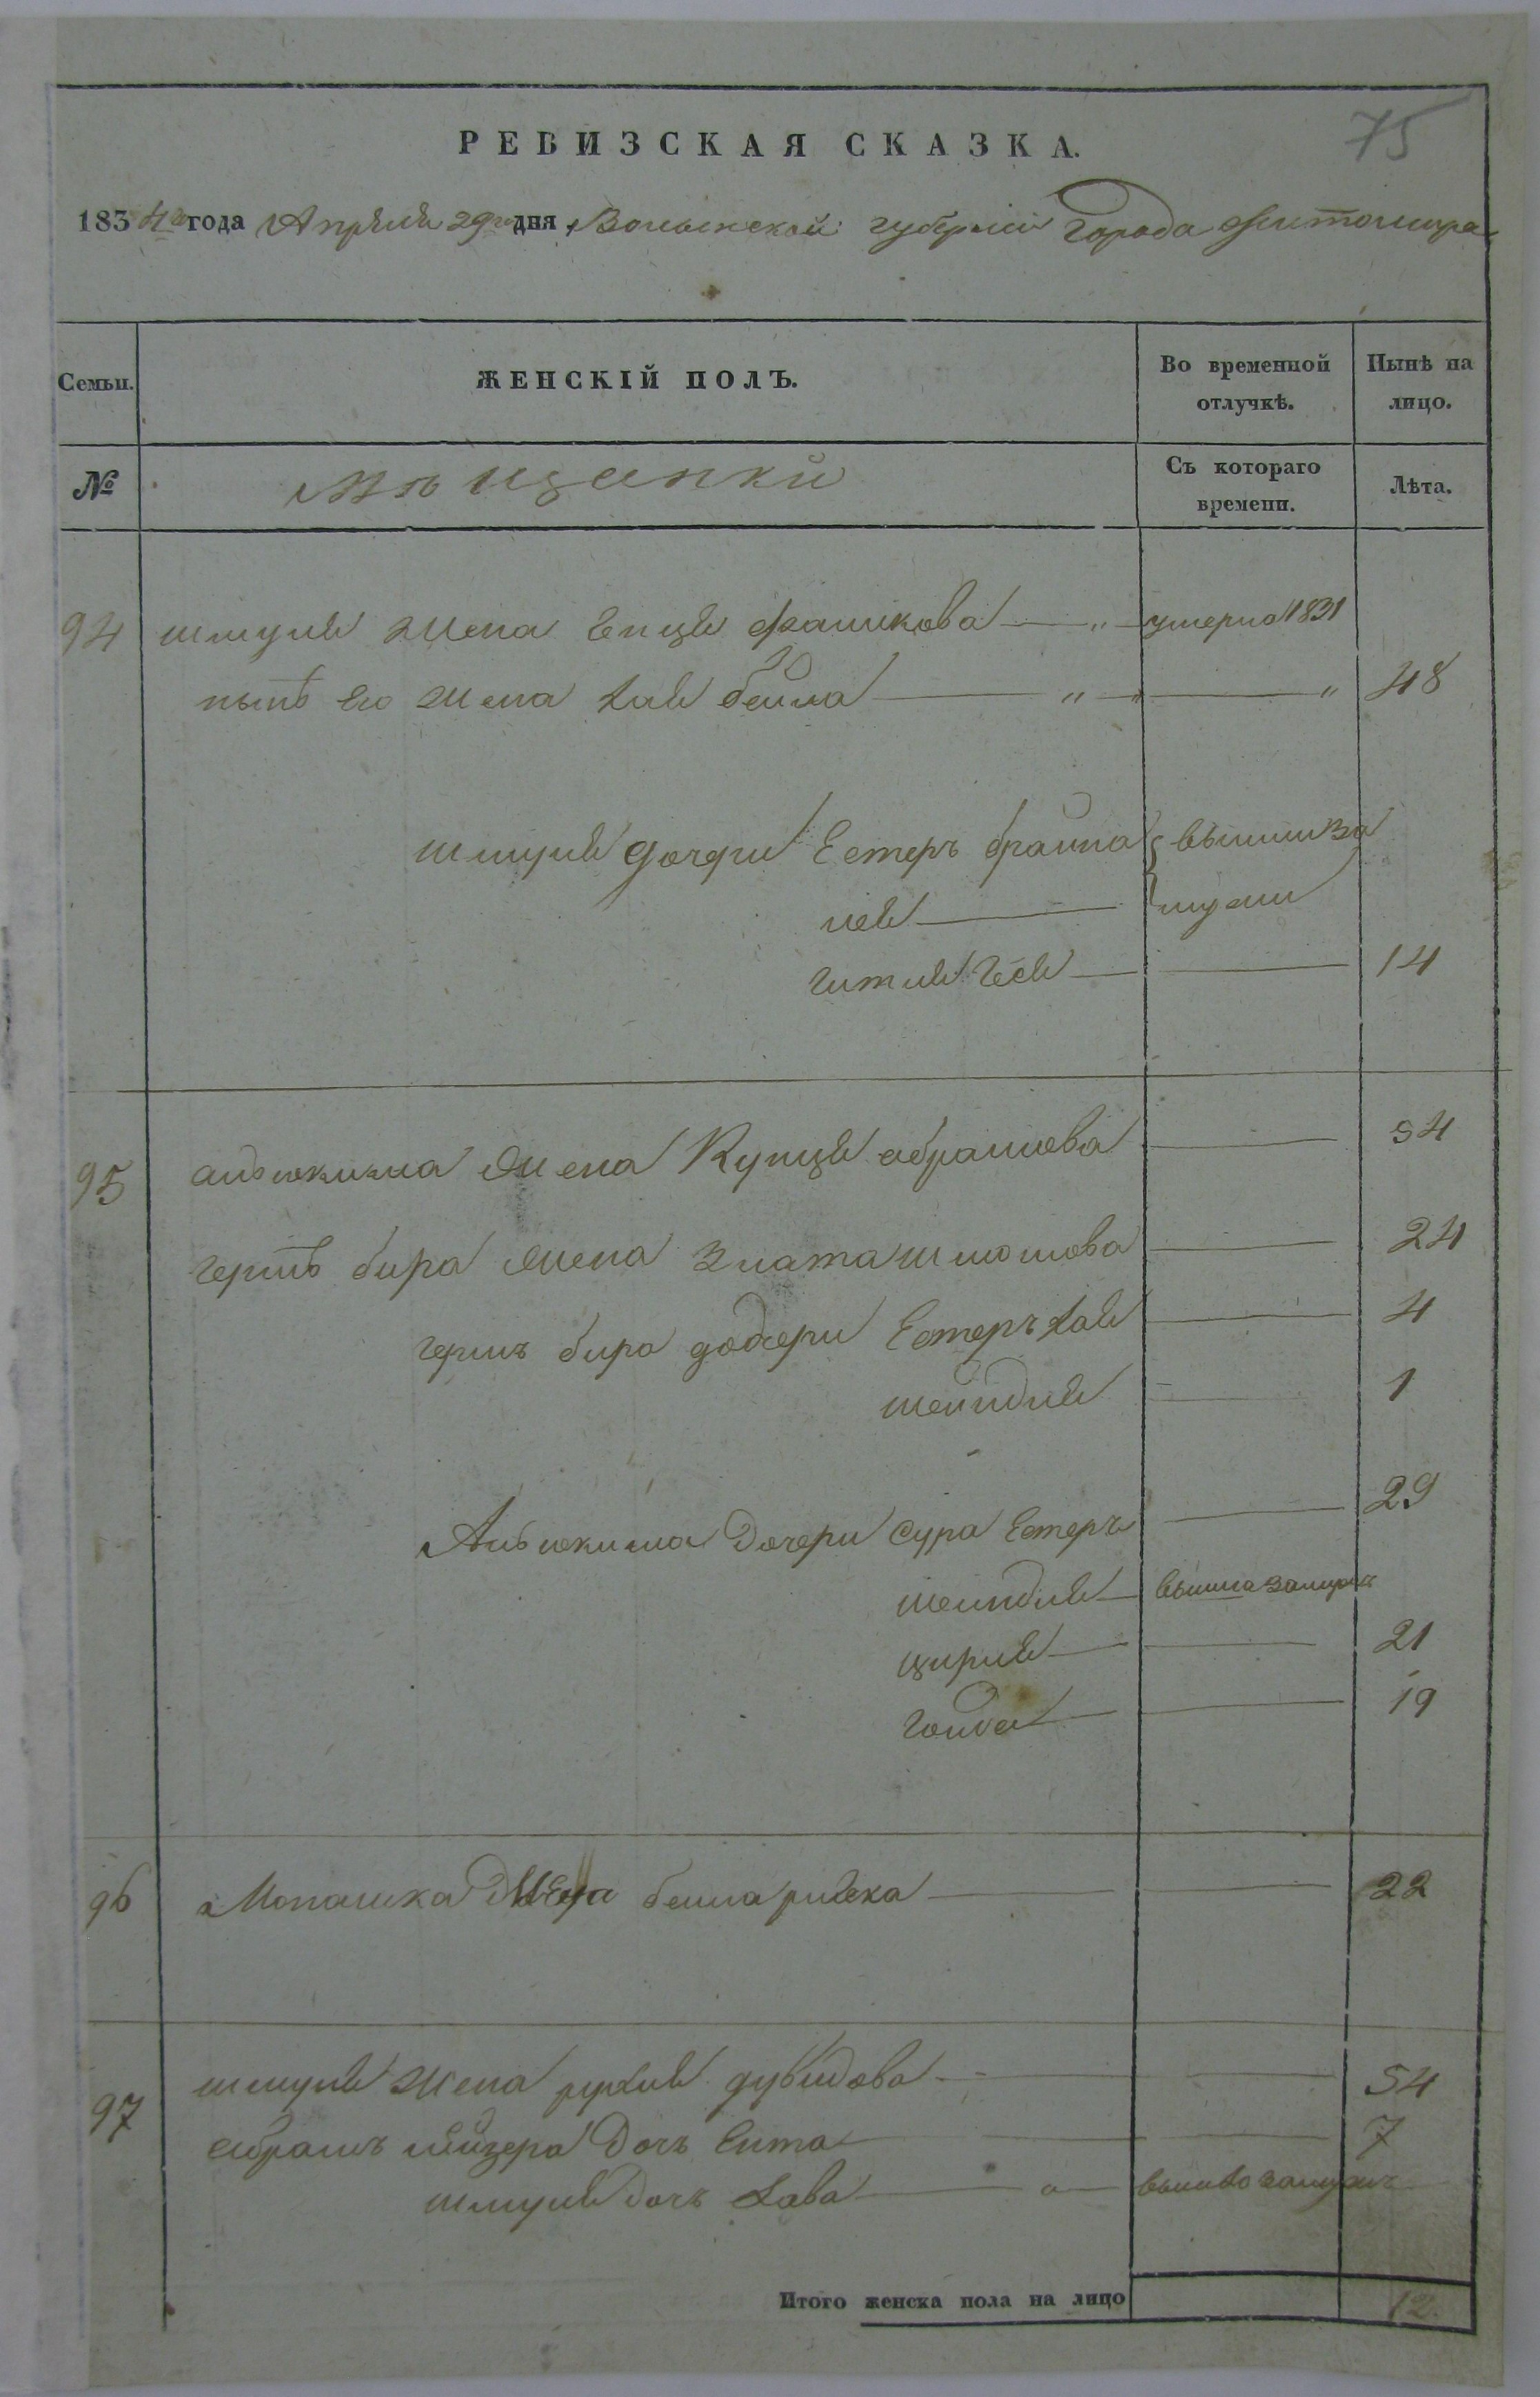 75
РЕВИЗСКАЯ СКАЗКА.
1834го года Апреля 29го дня, Волынской губернии Города Житомира
Семьи. ЖЕНСКІЙ ПОЛЪ. Во временной отлучкѣ. Нынѣ на лицо.
№ Мѣщанки Съ котораго времени. Лѣта.
94 шмуля жена Енця Фраимкова умерла 1831
нынѣ его жена хая бейла 48
шмуля дочери Естеръ брайна вышли за
лея мужи
гитля 14
95 жена абрамова 54
бира жена Злата шмюлова 24
гершъ бира дочери Естеръ хая 4
шейндля 1
дочери сура Естеръ 29
шейндля вышла замужъ
цирля 21
19
96 Монашка жена бейла ривка 22
97 шмуля жена рухля дувидова 54
абрамъ лейзера дочь Ента 7
шмуля дочь хава вышла замужъ
Итого женска пола на лицо 12.